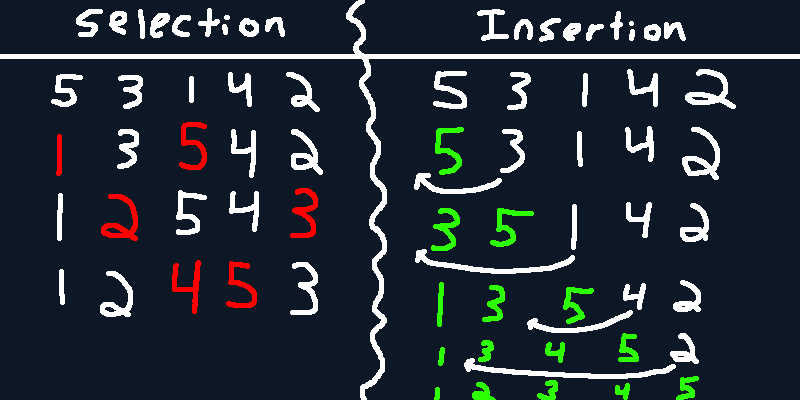 Selection
5 3 1 4 2
1 3 5 4 2
1 2 5 4 3
1 2 4 5 3
Insertion
5 3 1 4 2
5 3 1 4 2
3 5 1 4 2
1 3 5 4 2
1 3 4 5 2
1 2 3 4 5